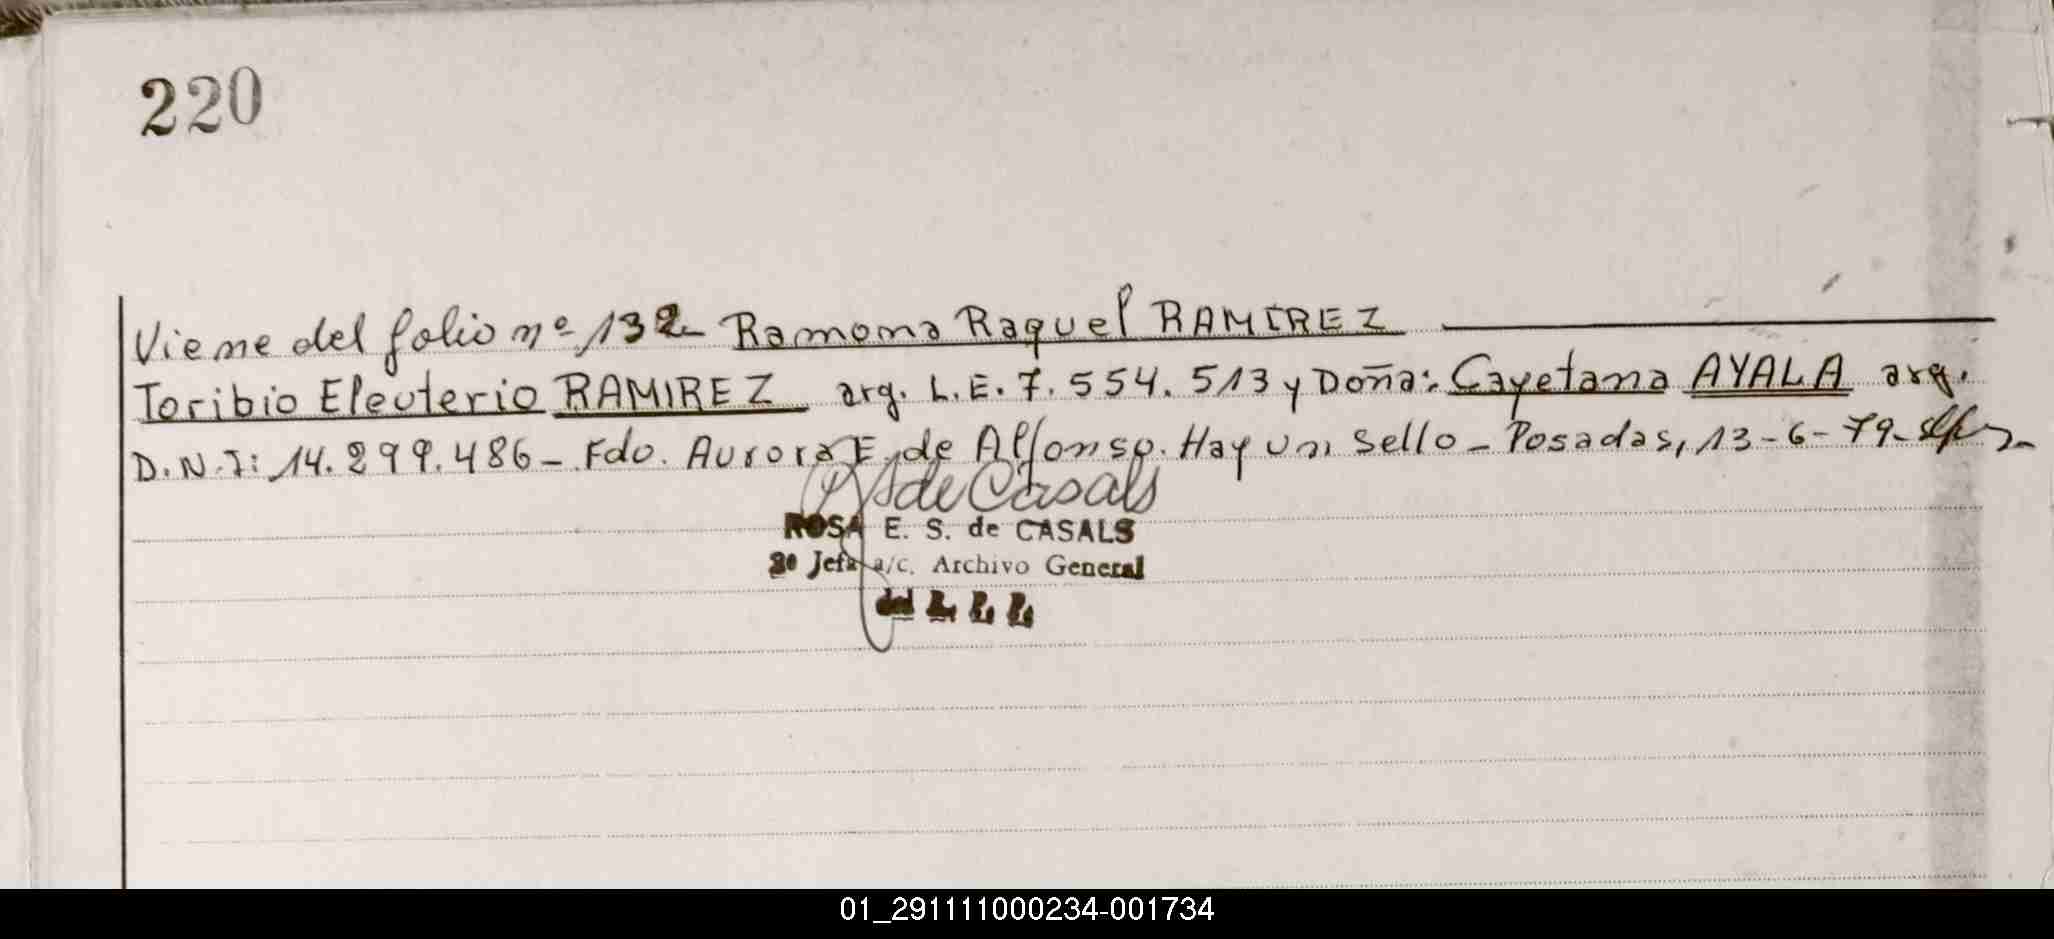 220
Viene del folio nº 132- Ramona Raquel RAMIREZ
Toribio Eleuterio RAMIREZ arg. L.E. 7.554.513 y Doña: Cayetana AYALA arg.
D.N.I: 14.299.486- Fdo. Aurora E. de Alfonso. Hay un sello - Posadas, 13-6-79-
de Casals
ROSA E. S. de CASALS
2º Jefa a/c. Archivo General
del R. P. P.
01_291111000234-001734